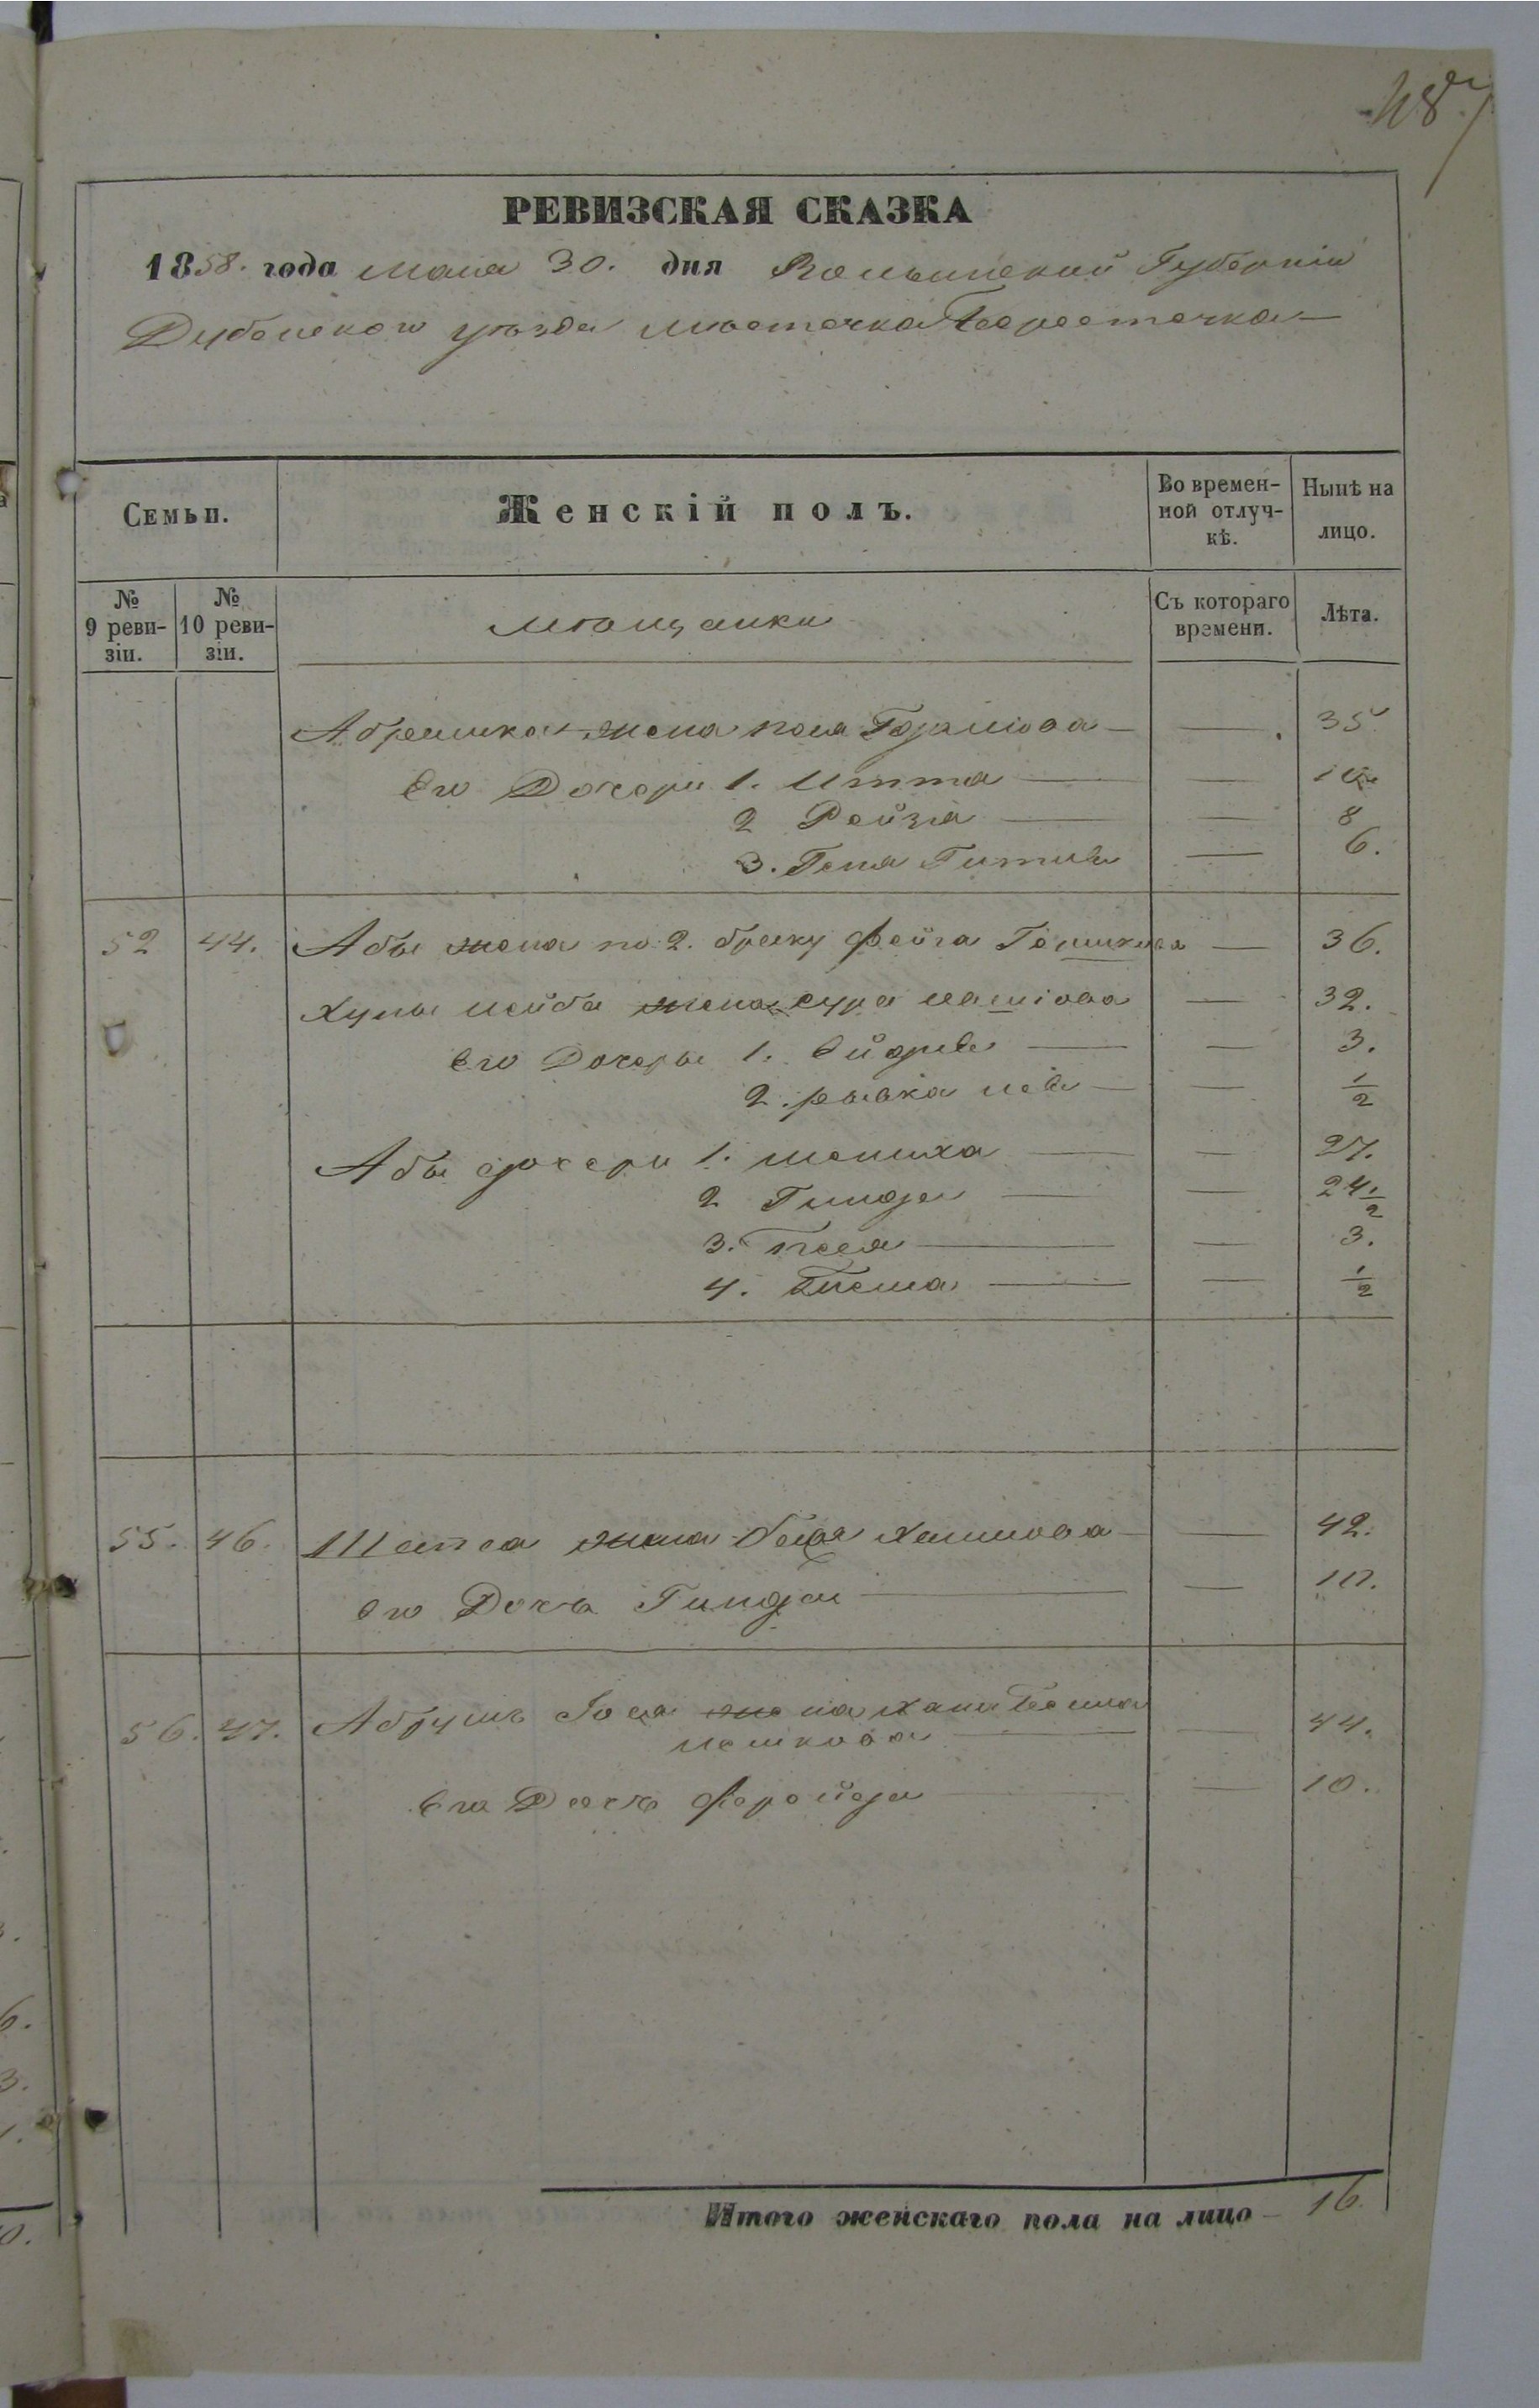 487
РЕВИЗСКАЯ СКАЗКА
1858. года мая 30. дня Волынской Губерніи
Дубенскаго уѣзда мѣстечка Берестечка
Семьи.
Женскій полъ.
Во времен-
ной отлуч-
кѣ.
Нынѣ на
лицо.
№
9 реви-
зіи.
№
10 реви-
зіи.
мѣщанки
Съ котораго
времени.
Лѣта.
Абрамка жена 35
Его Дочери 1. Итта 10
2 Рейзя 8
3. Геня Гитля 6.
52 44. Абы жена по 2. браку Фейга 36.
жена Сура 32.
Его Дочеры 1. Эйдля 3.
2. рывка лея 1/2
Абы дочери 1. 27.
2 Гинда 24 1/2
3. Песя 3.
4. 1/2
55. 46. жена Хаимова 42.
Его Дочь Гинда 10.
56. 47. жена Хана 44.
Его Дочь Фройда 10.
Итого женскаго пола на лицо 16